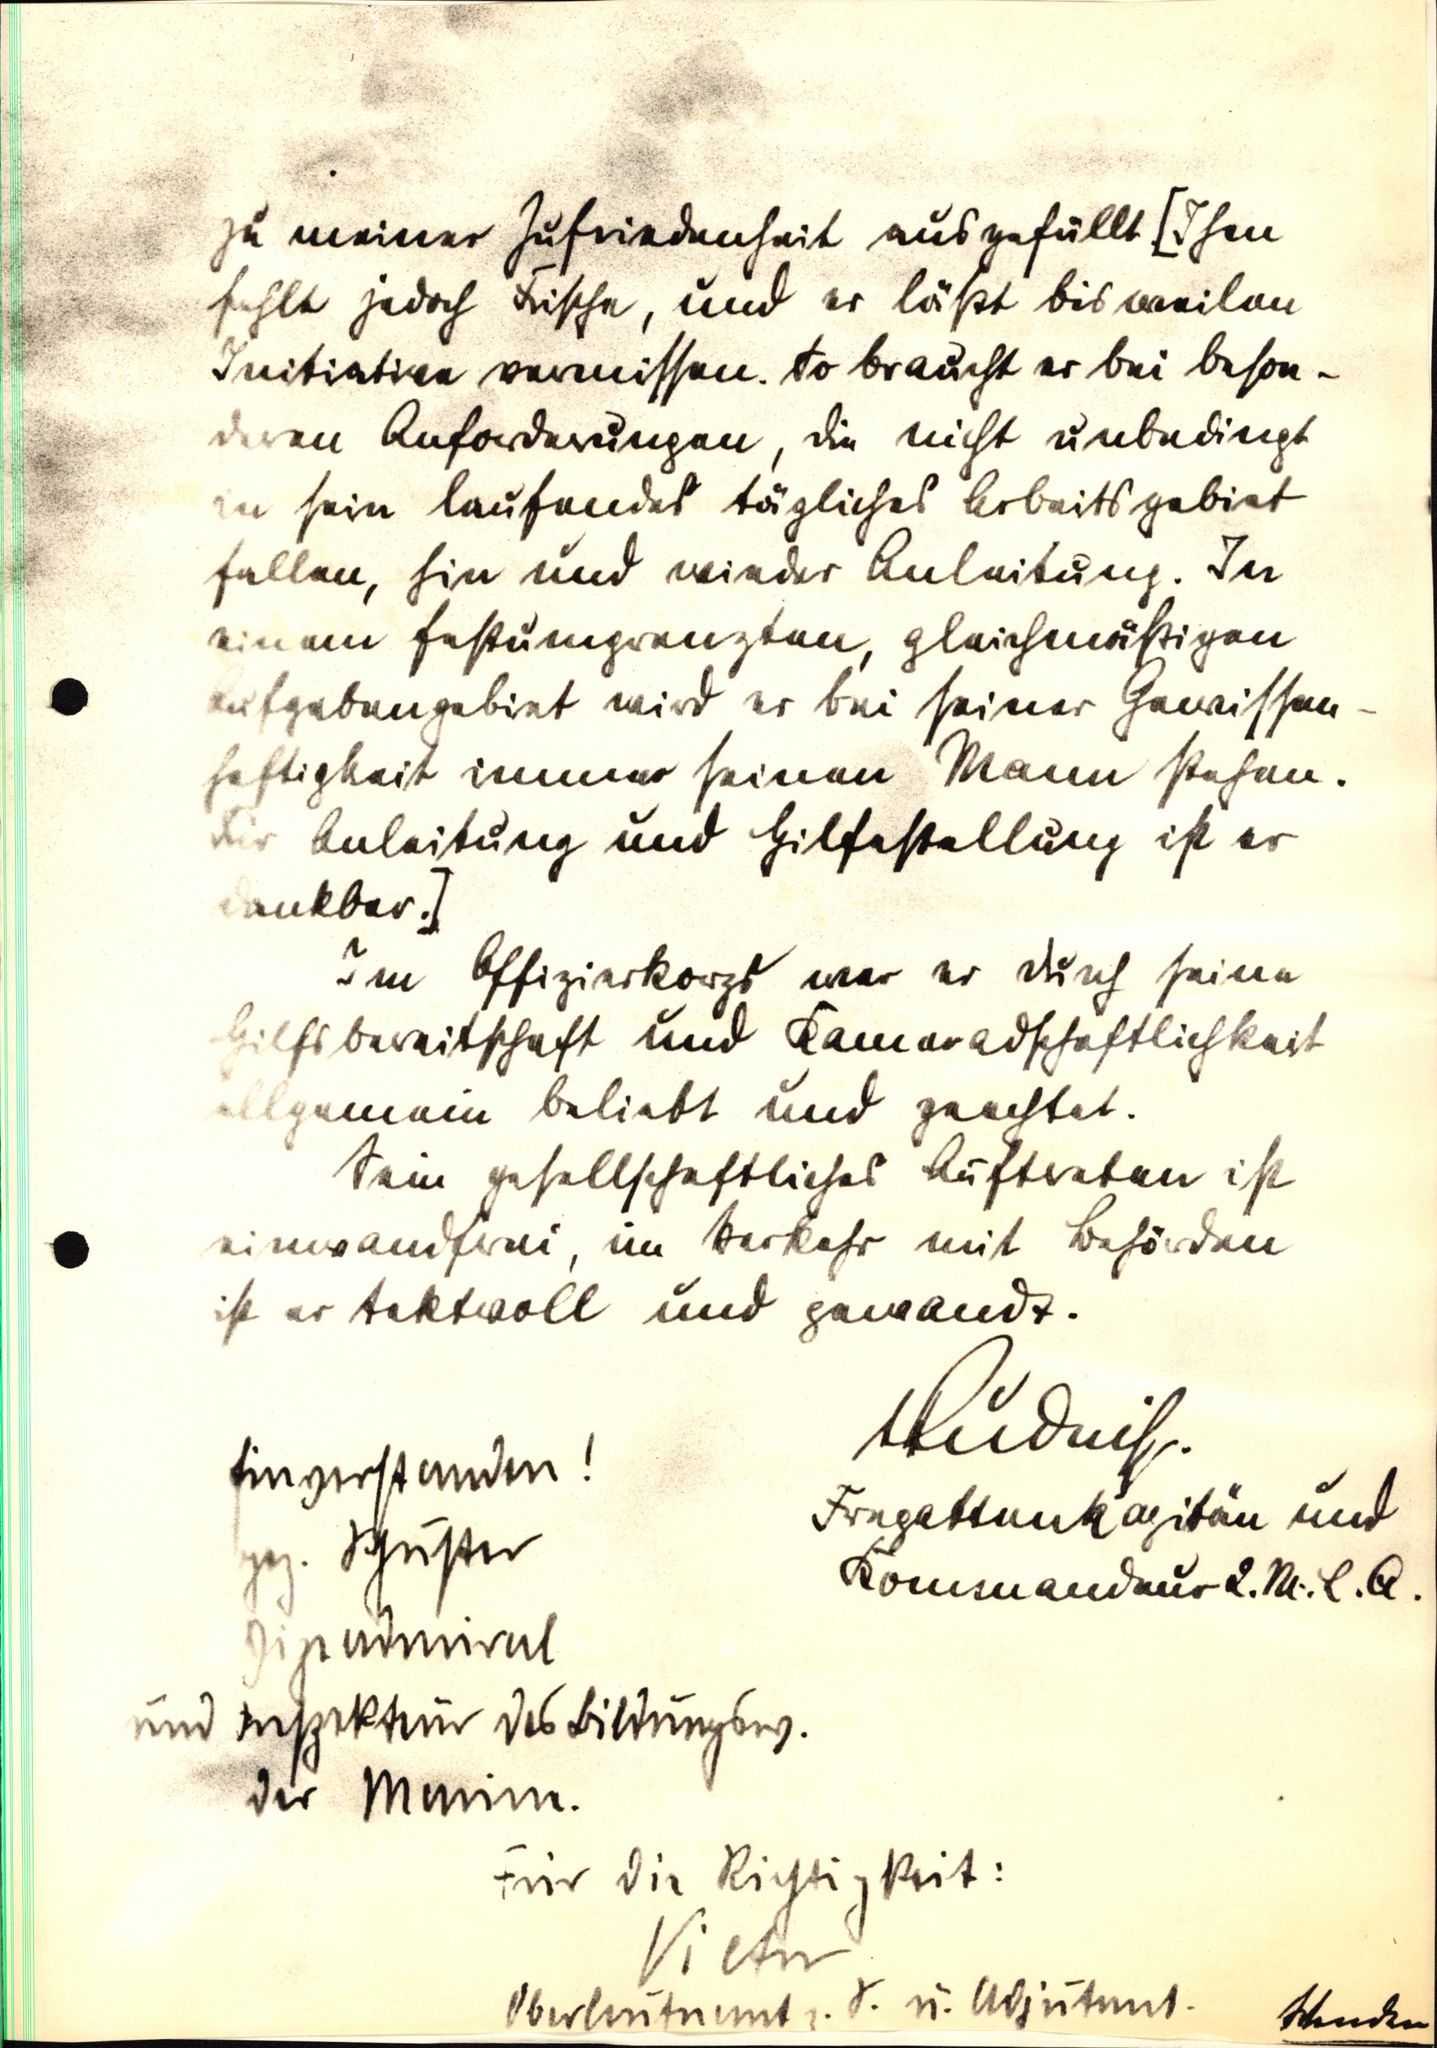 zu meiner Zufriedenheit ausgefüllt [Ihm
fehlt jedoch Frische, und er läßt bisweilen
Initiative vermissen. So braucht er bei beson-
deren Anforderungen, die nicht unbedingt
in sein laufendes tägliches Arbeitsgebiet
fallen, hin und wieder Anleitung. In
einem festumgrenzten, gleichmäßigen
Aufgabengebiet wird er bei seiner Gewissen-
haftigkeit immer seinen Mann stehen.
Für Anleitung und Hilfestellung ist er
dankbar.]
Im Offizierkorps war er durch seine
Hilfsbereitschaft und Kameradschaftlichkeit
allgemein beliebt und geachtet.
Sein gesellschaftliches Auftreten ist
einwandfrei, im Verkehr mit Behörden
ist er taktvoll und gewandt.
Fregattenkapitän und
Kommandeur 2. M. L. A.
Einverstanden!
gez. Schuster
Vizeadmiral
und Inspekteur des Bildungsw.
der Marine.
Für die Richtigkeit:
Oberleutnant z. S. u. Adjutant.